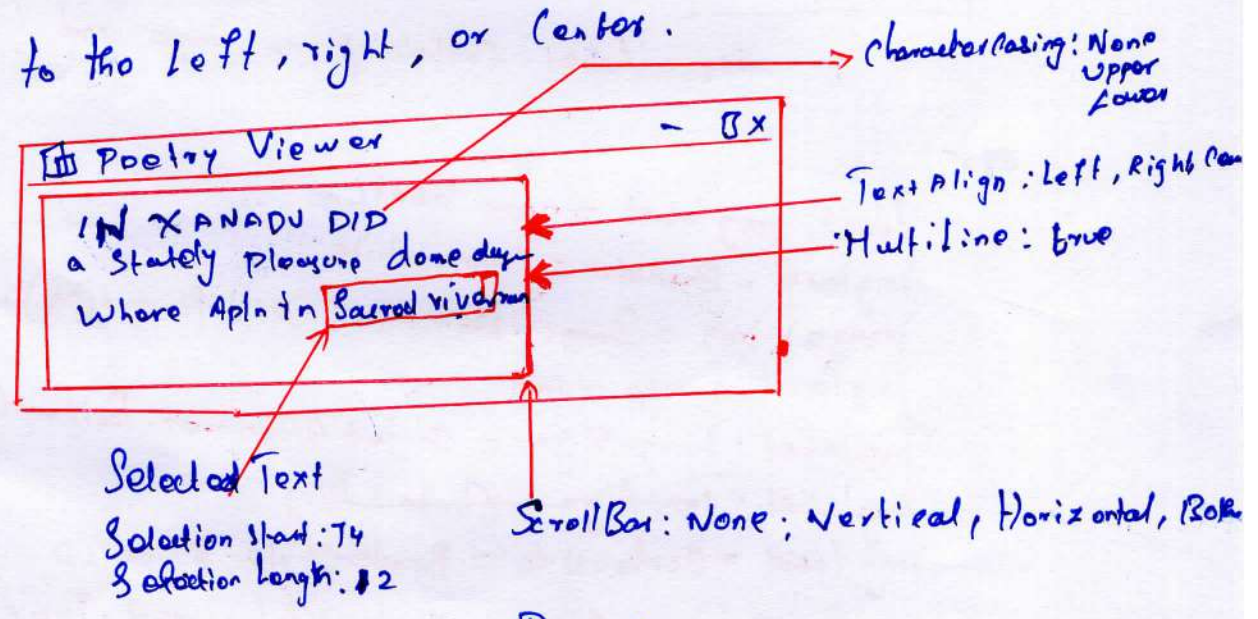 to the left, right, or Center.
CharacterCasing: None
Upper
Lower
Poetry Viewer
IN XANADU DID
a Stately pleasure dome
Where Sacred river
Text Align: Left, Right
Multiline: true
Selected Text
Selection Start: 74
Selection Length: 12
ScrollBar: None, Vertical, Horizontal, Both